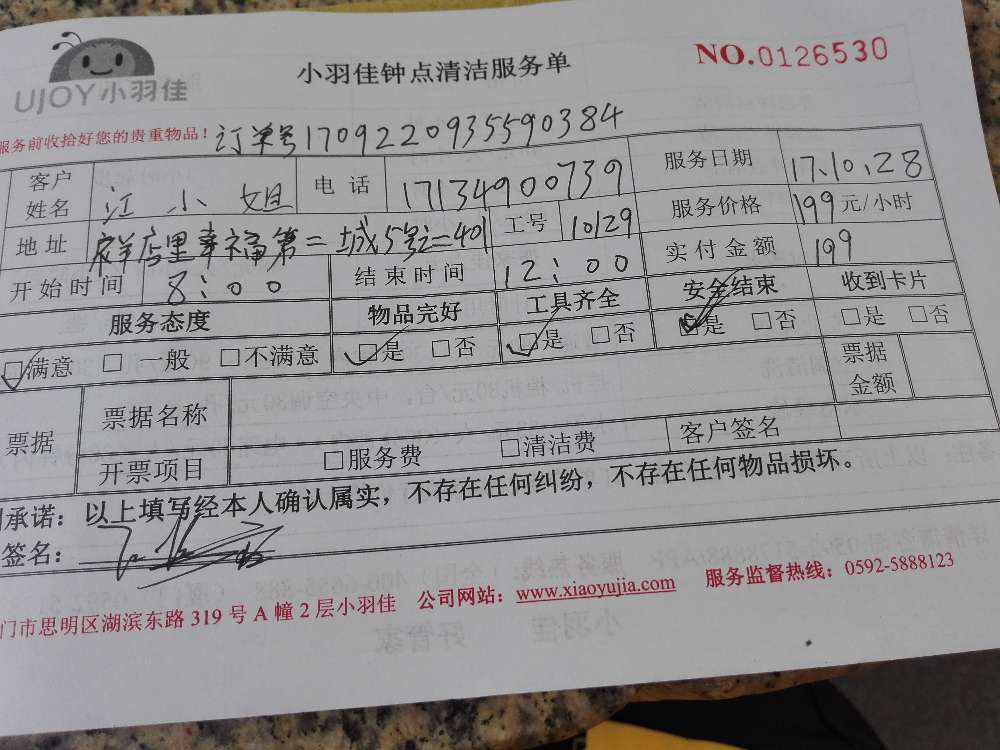 UJOY小羽佳
小羽佳钟点清洁服务单
NO.0126530
服务前收拾好您的贵重物品！ 订单号1709220935590384
客户姓名 江小姐 电话 17134900739 服务日期 17.10.28
地址 店里幸福第二城5号 401 工号 10129 服务价格 199元/小时
开始时间 8:00 结束时间 12:00 实付金额 199
服务态度 物品完好 工具齐全 安全结束 收到卡片
☑满意 □一般 □不满意 ☑是 □否 ☑是 □否 ☑是 □否 □是 □否
票据 票据名称 票据金额
开票项目 □服务费 □清洁费 客户签名
承诺：以上填写经本人确认属实，不存在任何纠纷，不存在任何物品损坏。
签名：
门市思明区湖滨东路319号A幢2层小羽佳 公司网站：www.xiaoyujia.com 服务监督热线：0592-5888123